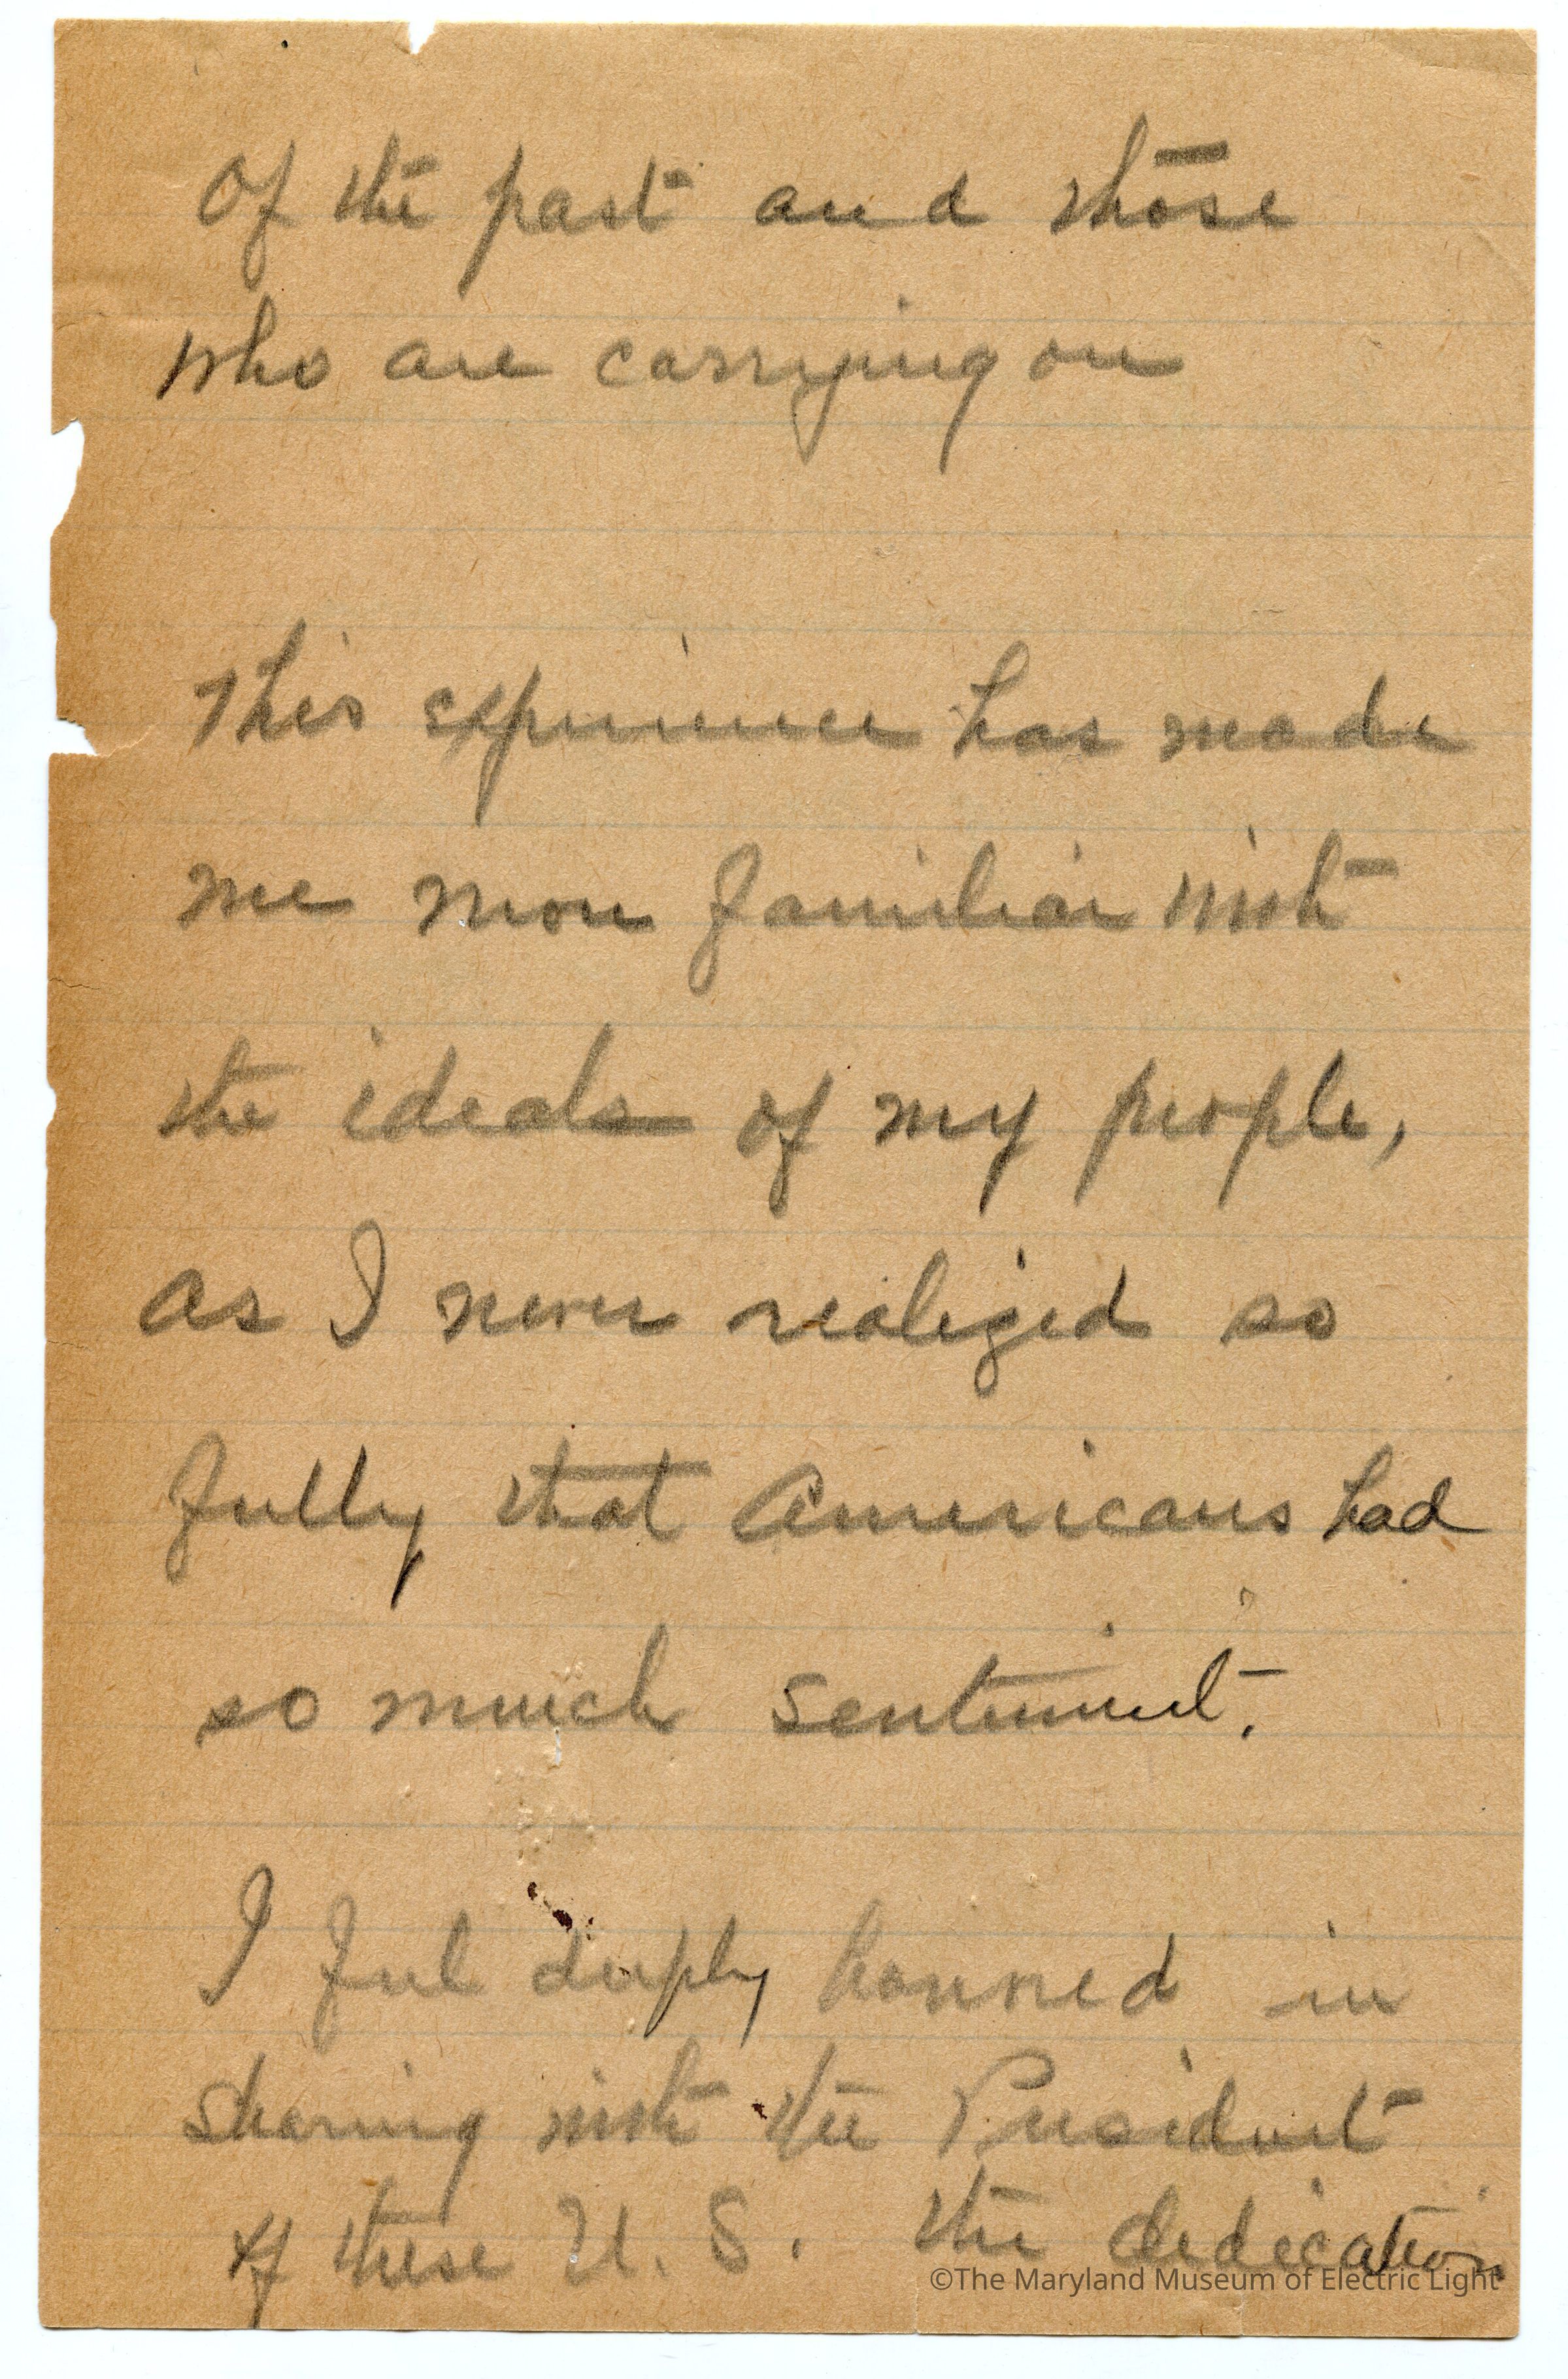 Of the past and those
who are carrying on
This experience has made
me more familiar with
the ideals of my people,
as I never realized so
fully that Americans had
so much sentiment.
I feel deeply honored in
sharing with the President
of these U. S. the dedication
©The Maryland Museum of Electric Light